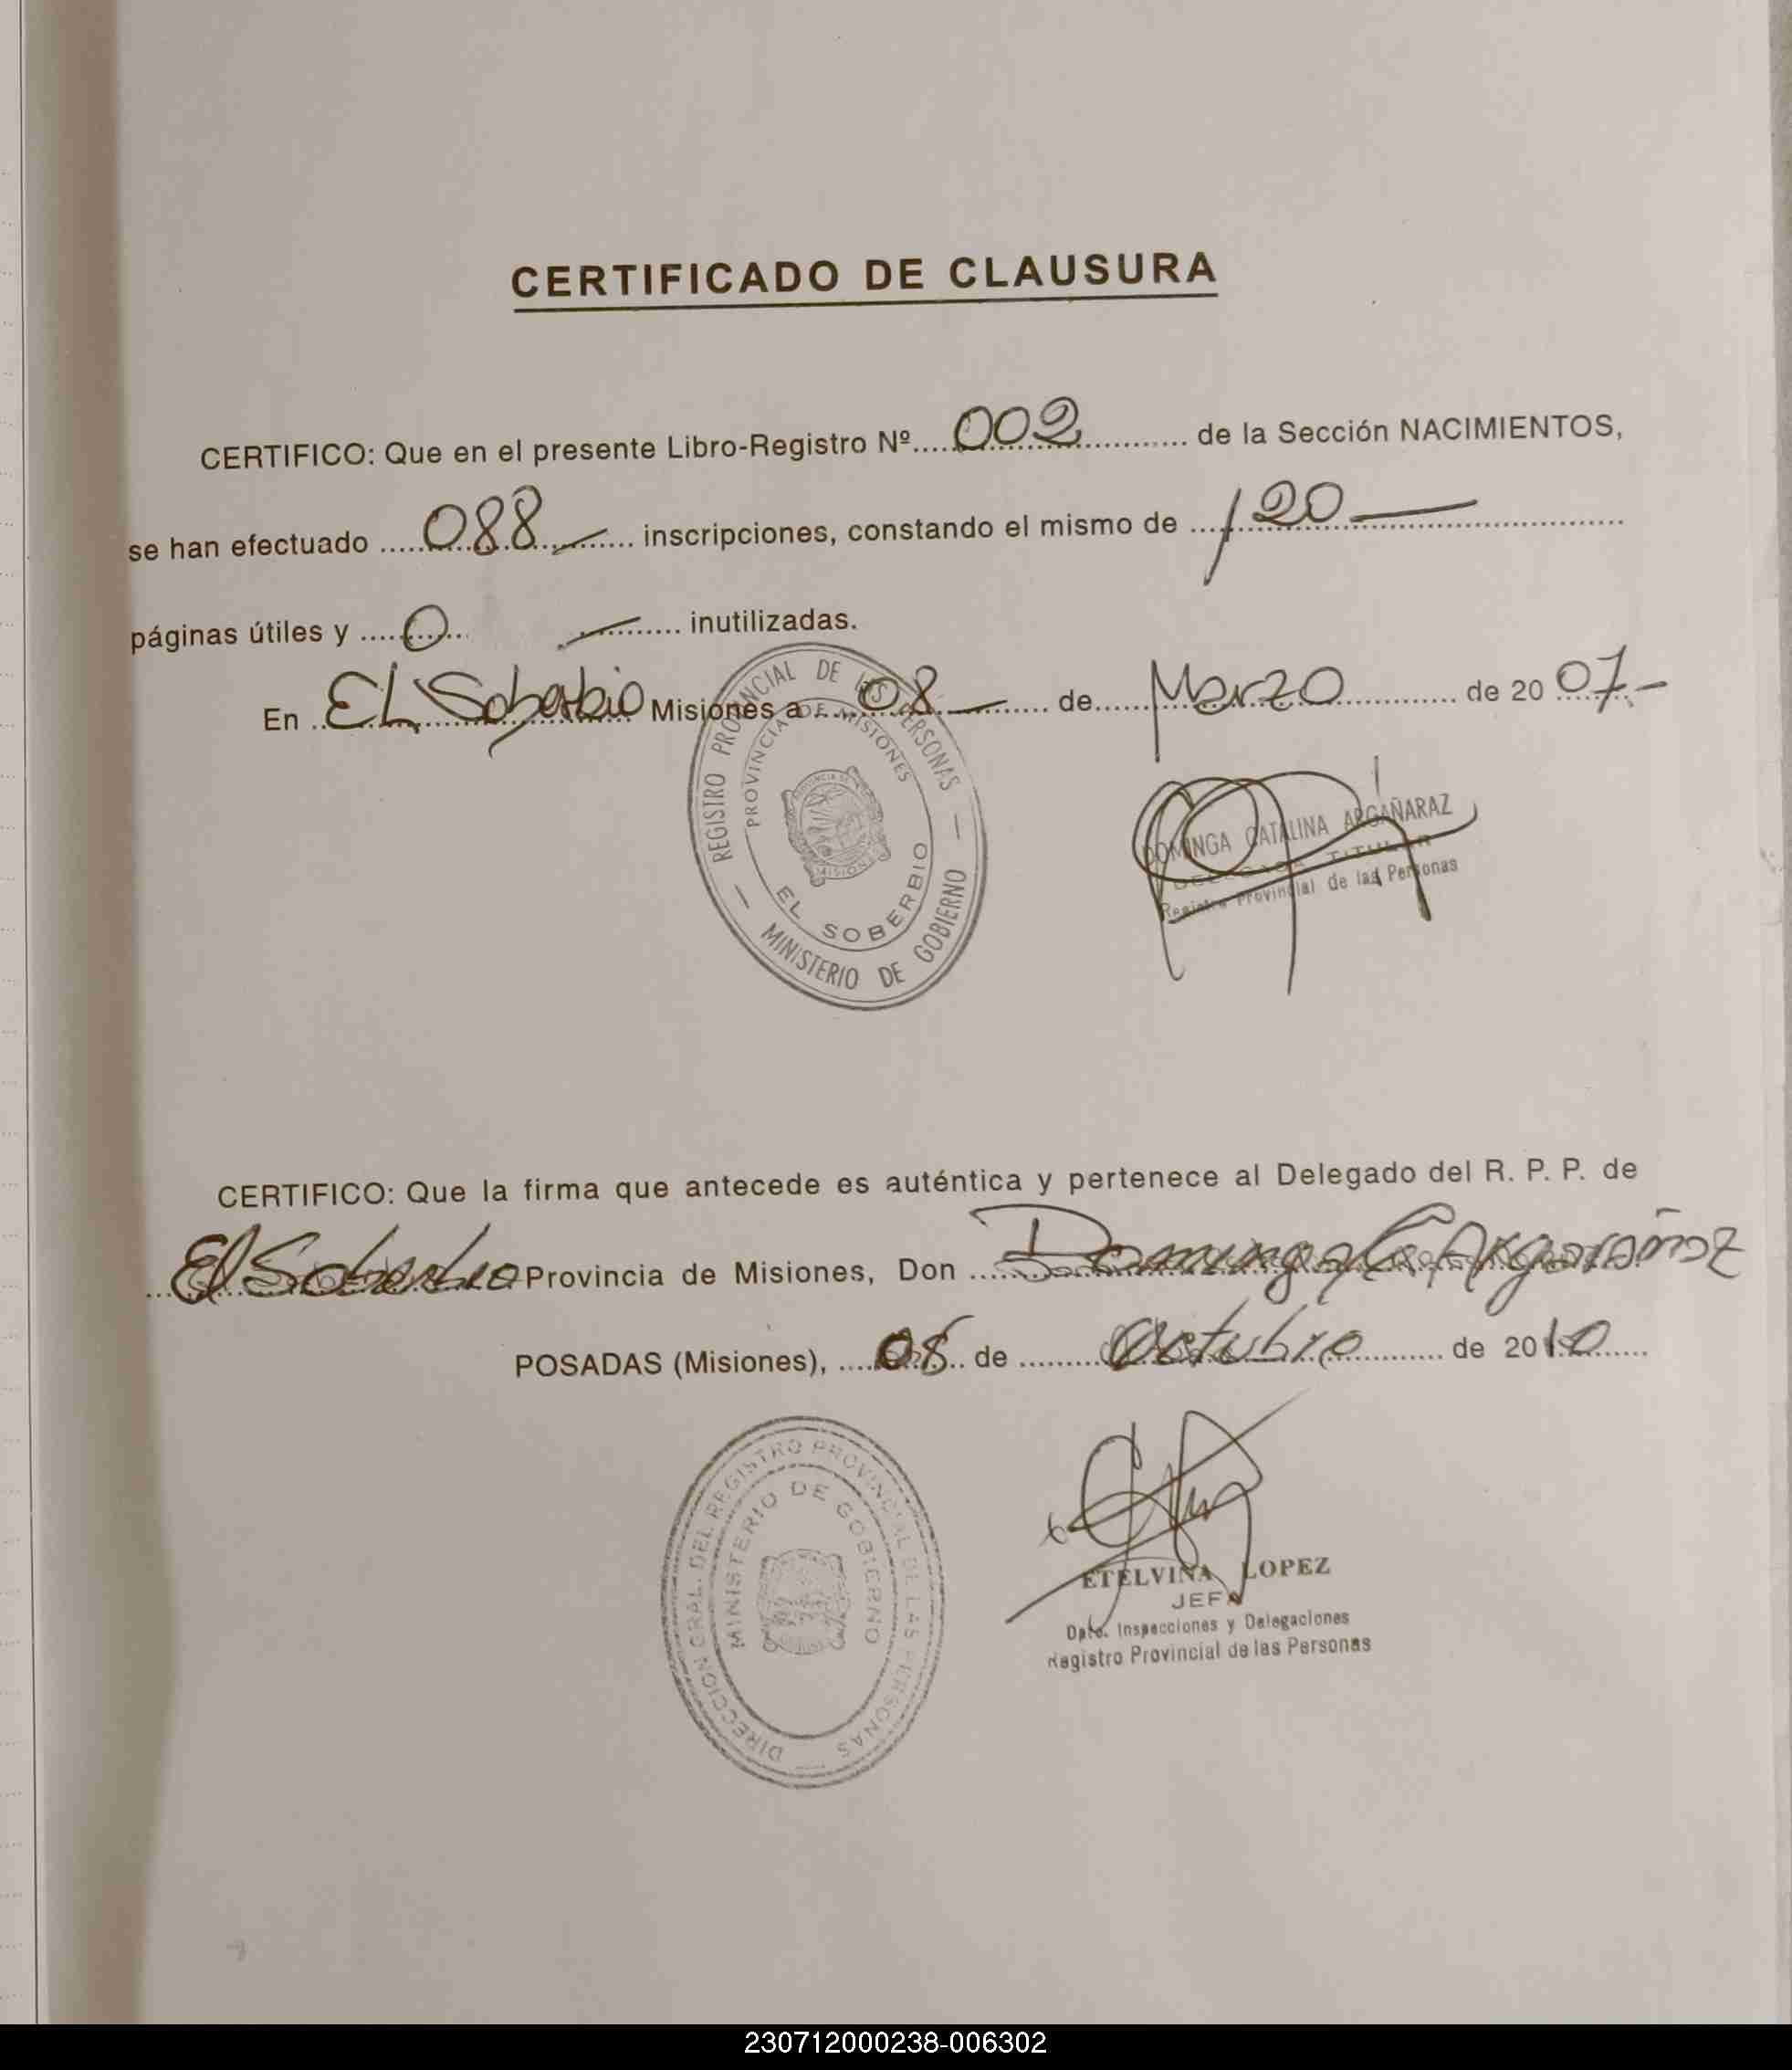 CERTIFICADO DE CLAUSURA
CERTIFICO: Que en el presente Libro-Registro Nº..... 002 ............ de la Sección NACIMIENTOS,
se han efectuado ..... 088 ......... inscripciones, constando el mismo de .... 120 — ....................
páginas útiles y ..... 0 ... — .......... inutilizadas.
En .. EL Soberbio Misiones a .... 08 — ...... de...... Marzo ............ de 20 07.-
REGISTRO PROVINCIAL DE LAS PERSONAS
PROVINCIA DE MISIONES
EL SOBERBIO
MINISTERIO DE GOBIERNO
DOMINGA CATALINA ARGAÑARAZ
DELEGADA TITULAR
Registro Provincial de las Personas
CERTIFICO: Que la firma que antecede es auténtica y pertenece al Delegado del R. P. P. de
... El Soberbio Provincia de Misiones, Don ..... Dominga C. Argarañaz
POSADAS (Misiones), .... 08 .. de ......... Octubre ............ de 2010 ......
DIRECCION GRAL. DEL REGISTRO PROVINCIAL DE LAS PERSONAS
MINISTERIO DE GOBIERNO
ETELVINA LOPEZ
JEFA
Dpto. Inspecciones y Delegaciones
Registro Provincial de las Personas
230712000238-006302